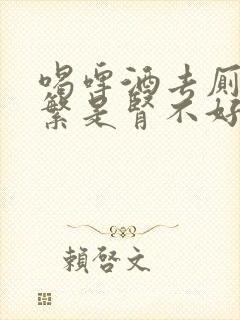 喝啤酒去厠
繁是腎不好
賴啓文